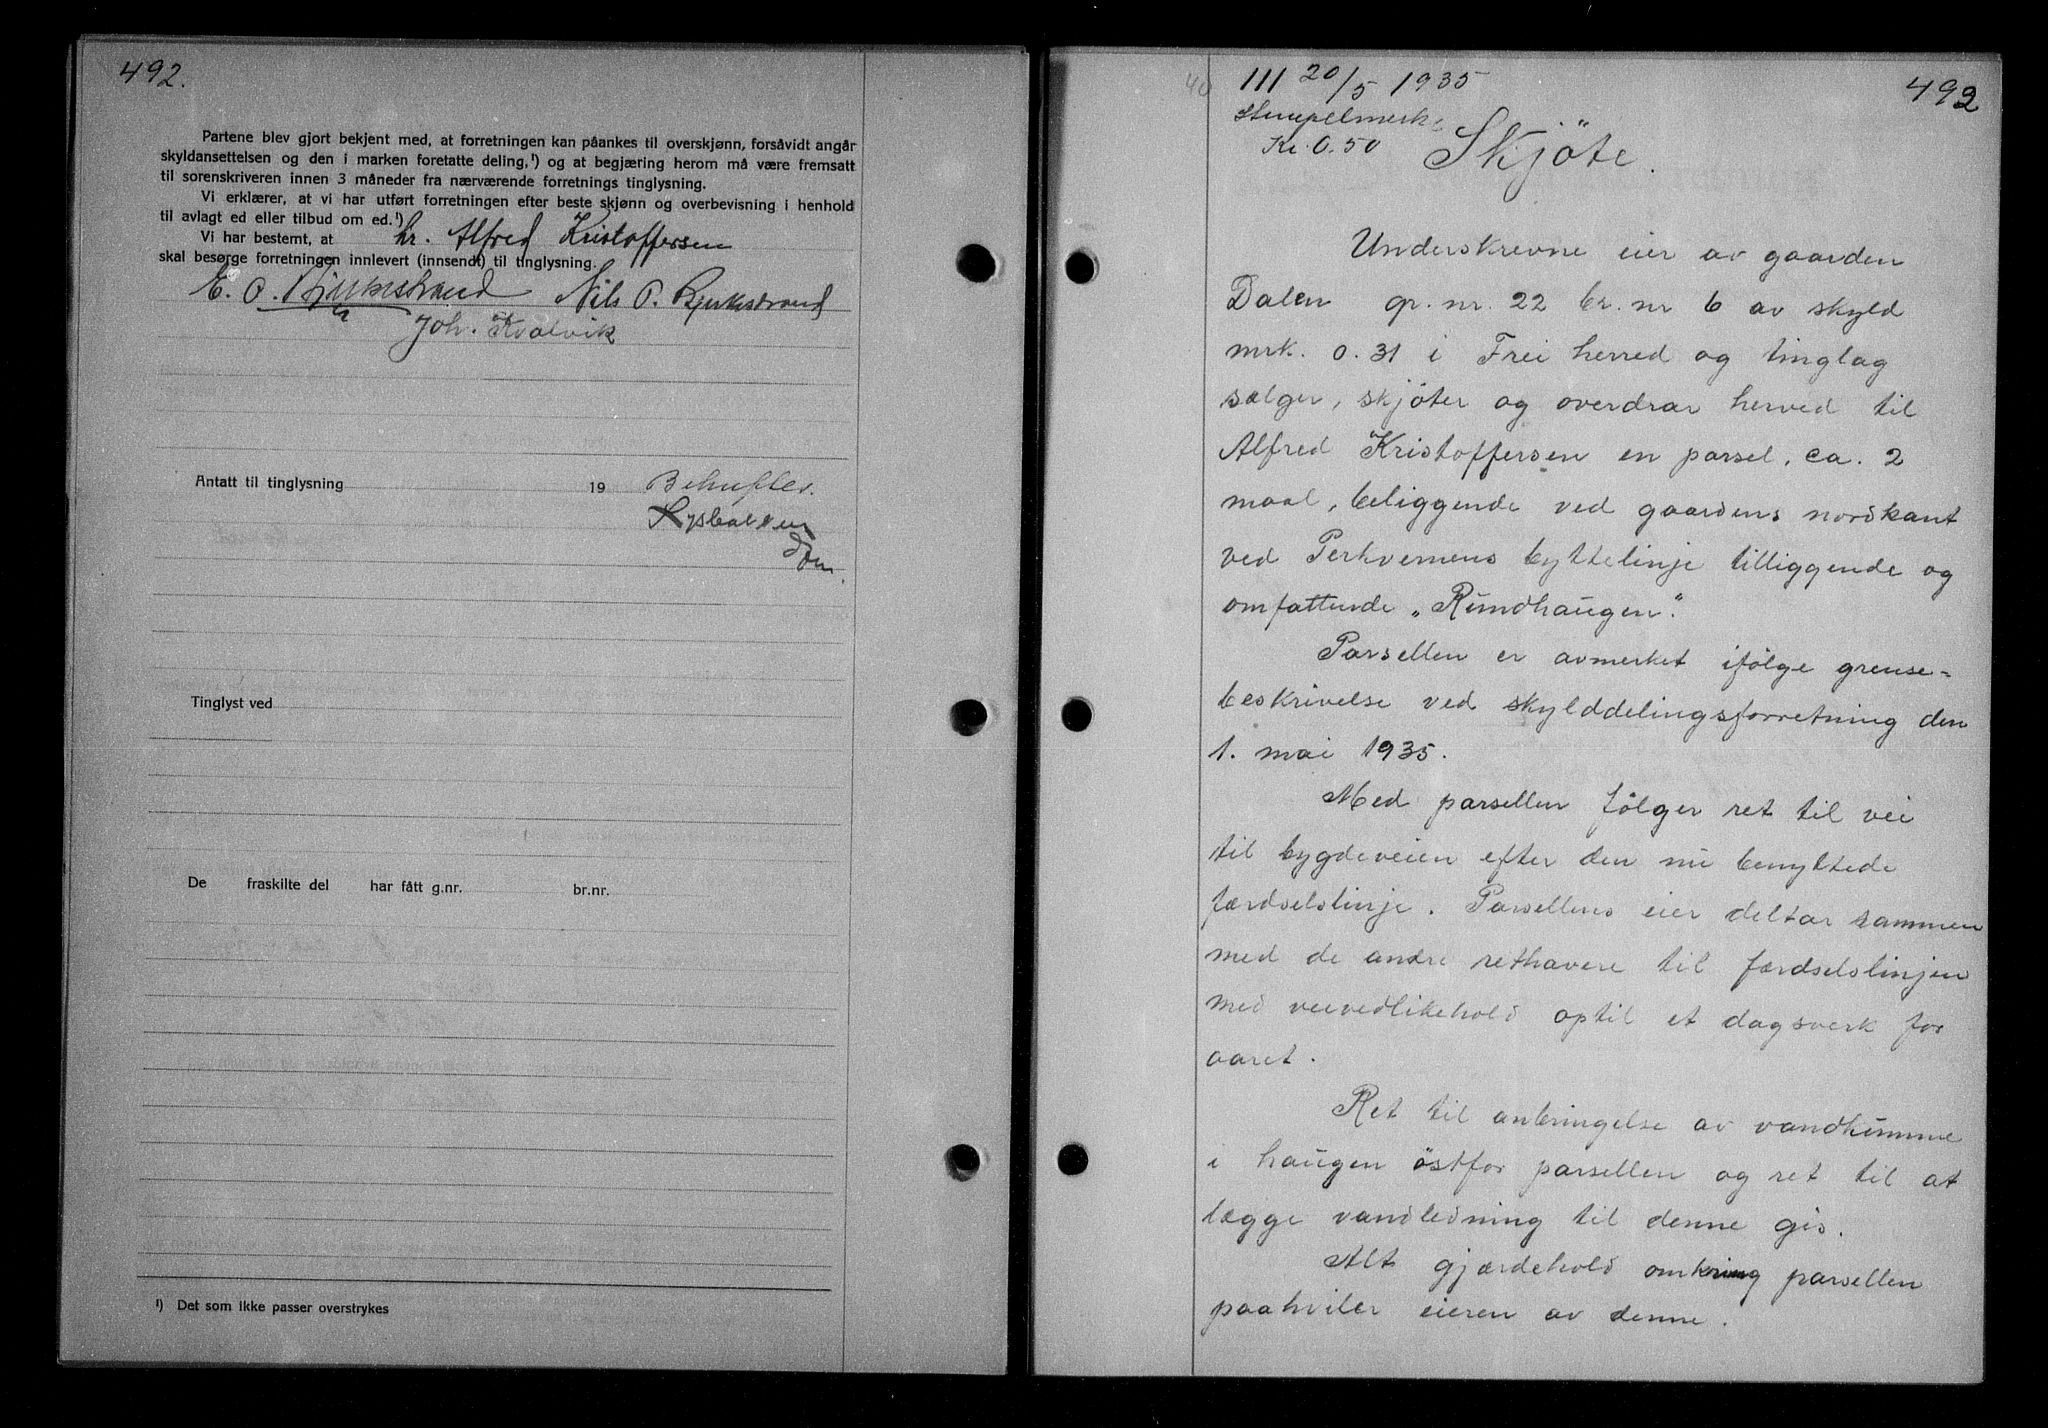 492.
Partene blev gjort bekjent med, at forretningen kan påankes til overskjønn, forsåvidt angår
skyldansettelsen og den i marken foretatte deling,¹) og at begjæring herom må være fremsatt
til sorenskriveren innen 3 måneder fra nærværende forretnings tinglysning.
Vi erklærer, at vi har utført forretningen efter beste skjønn og overbevisning i henhold
til avlagt ed eller tilbud om ed.¹)
Vi har bestemt, at hr. Alfred Kristoffersen
skal besørge forretningen innlevert (innsendt) til tinglysning.
E. O. Nils P.
Joh. Kvalvik
Antatt til tinglysning 19
Tinglyst ved
De fraskilte del har fått g.nr. br.nr.
¹) Det som ikke passer overstrykes
111 20/5 1935
492
Stempelmerke
Kr. 0.50
Skjöte.
Underskrevne eier av gaarden
Dalen gr. nr. 22 br. nr 6 av skyld
mrk. 0.31 i Frei herred og tinglag
sælger, skjöter og overdrar herved til
Alfred Kristoffersen en parsel, ca. 2
maal, beliggende ved gaardens nordkant
ved Perkvernens byttelinje tilliggende og
omfattende „Rundhaugen".
Parsellen er avmerket ifölge grense-
beskrivelse ved skylddelingsforretning den
1. mai 1935.
Med parsellen fölger ret til vei
til bygdeveien efter den nu benyttede
færdselslinje. Parsellens eier deltar sammen
med de andre rethavere til færdselslinjen
med veivedlikehold optil et dagsverk for
aaret.
Ret til anbringelse av vandkumme
i haugen östfor parsellen og ret til at
lægge vandledning til denne gis.
Alt gjærdehold omkring parsellen
paahviler eieren av denne.